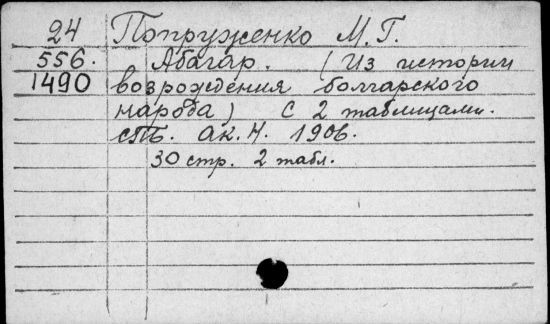 24 Попруженко М. Г.
556. Абагар. (Из истории
1490 возрождения болгарского
народа) с 2 таблицами.
СПБ. Ак. Н. 1906.
30 стр. 2 табл.